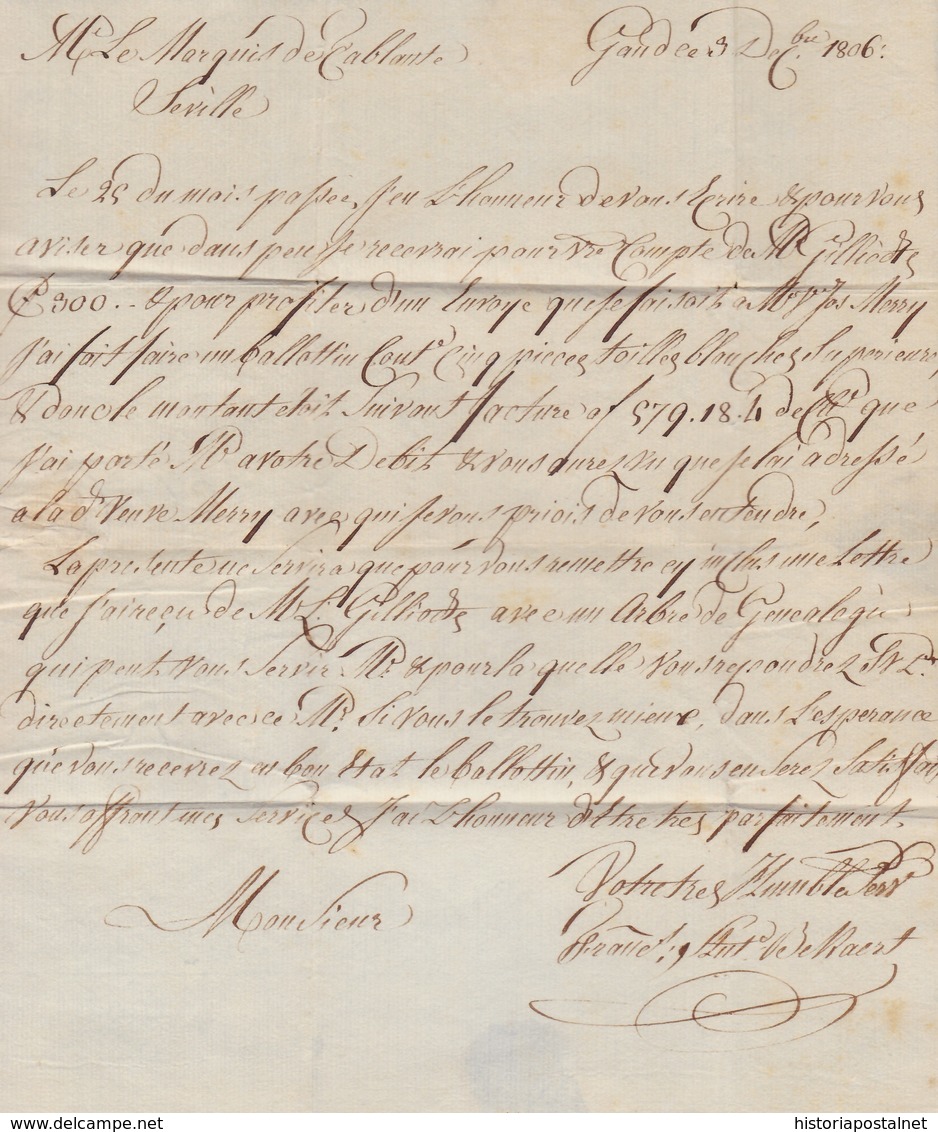 Mr. Le Marquis de Cablante Gand ce 3 Decbre. 1806.
Seville
Le 25 du mois passée, J'eu L'honneur de vous Ecrire & pour vous
aviser que dans peu Je recevrai pour vre Compte de Mr Gilliodts
300.- & pour profiter d'un Envoye que Je faisoit a Me Ve Jos Merry
J'ai fait faire un ballottin Conte Cinq pieces toilles blanches Superieures,
& donc le montant étoit Suivant facture a f 579.18.4 de que
J'ai porté Mr a votre Debit & vous aurez vu que Je l'ai adressé
a la de Veuve Merry avec qui Je vous priois de vous entendre,
La presente ne Servira que pour vous remettre cy inclus une Lettre
que J'ai reçu de Mr L. Gilliodts avec un Arbre de Genealogie
qui peut vous Servir Mr & pour la quelle vous repondrez
directement avec ce Mr. Si vous le trouvez mieux, dans L'esperance
que vous recevrez en bon Etat le ballottin, & que vous en Serez Satisfait,
vous offrant mes Services J'ai L'honneur d'Etre tres parfaitement
Votre tres Humble Servr
Monsieur
Franc. Ante. BeKaert
historiapostalnet